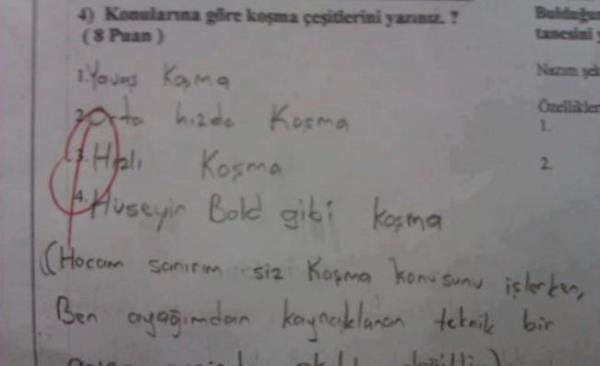 4) Konularına göre koşma çeşitlerini yazınız. ?
( 8 Puan )
1. Yavaş Koşma
2. Orta hızda Koşma
3. Hızlı Koşma
4. Hüseyin Bold gibi koşma
(Hocam sanırım siz Koşma konusunu işlerken,
Ben ayağımdan kaynaklanan teknik bir
değildi.)
tanesini
Nazım
Özellikler
1.
2.